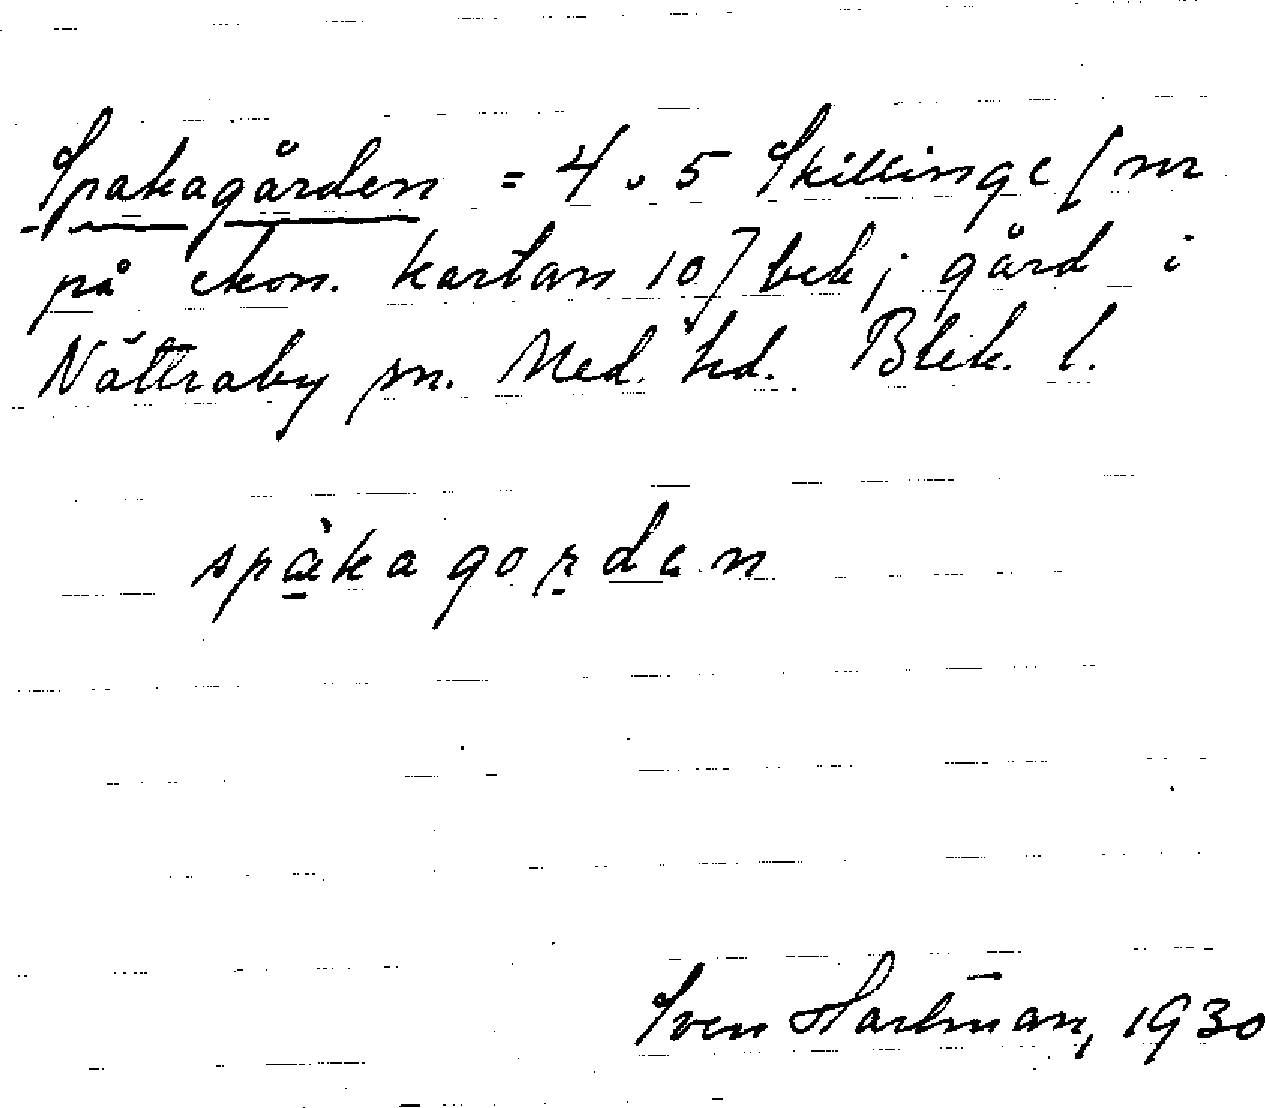 Spakagården = 4 o 5 Skillinge (nr
på ekon. kartan 10) bek; gård i
Nättraby sn. Med. hd. Blek. l.
spàkagorden
Sven Hartman, 1930